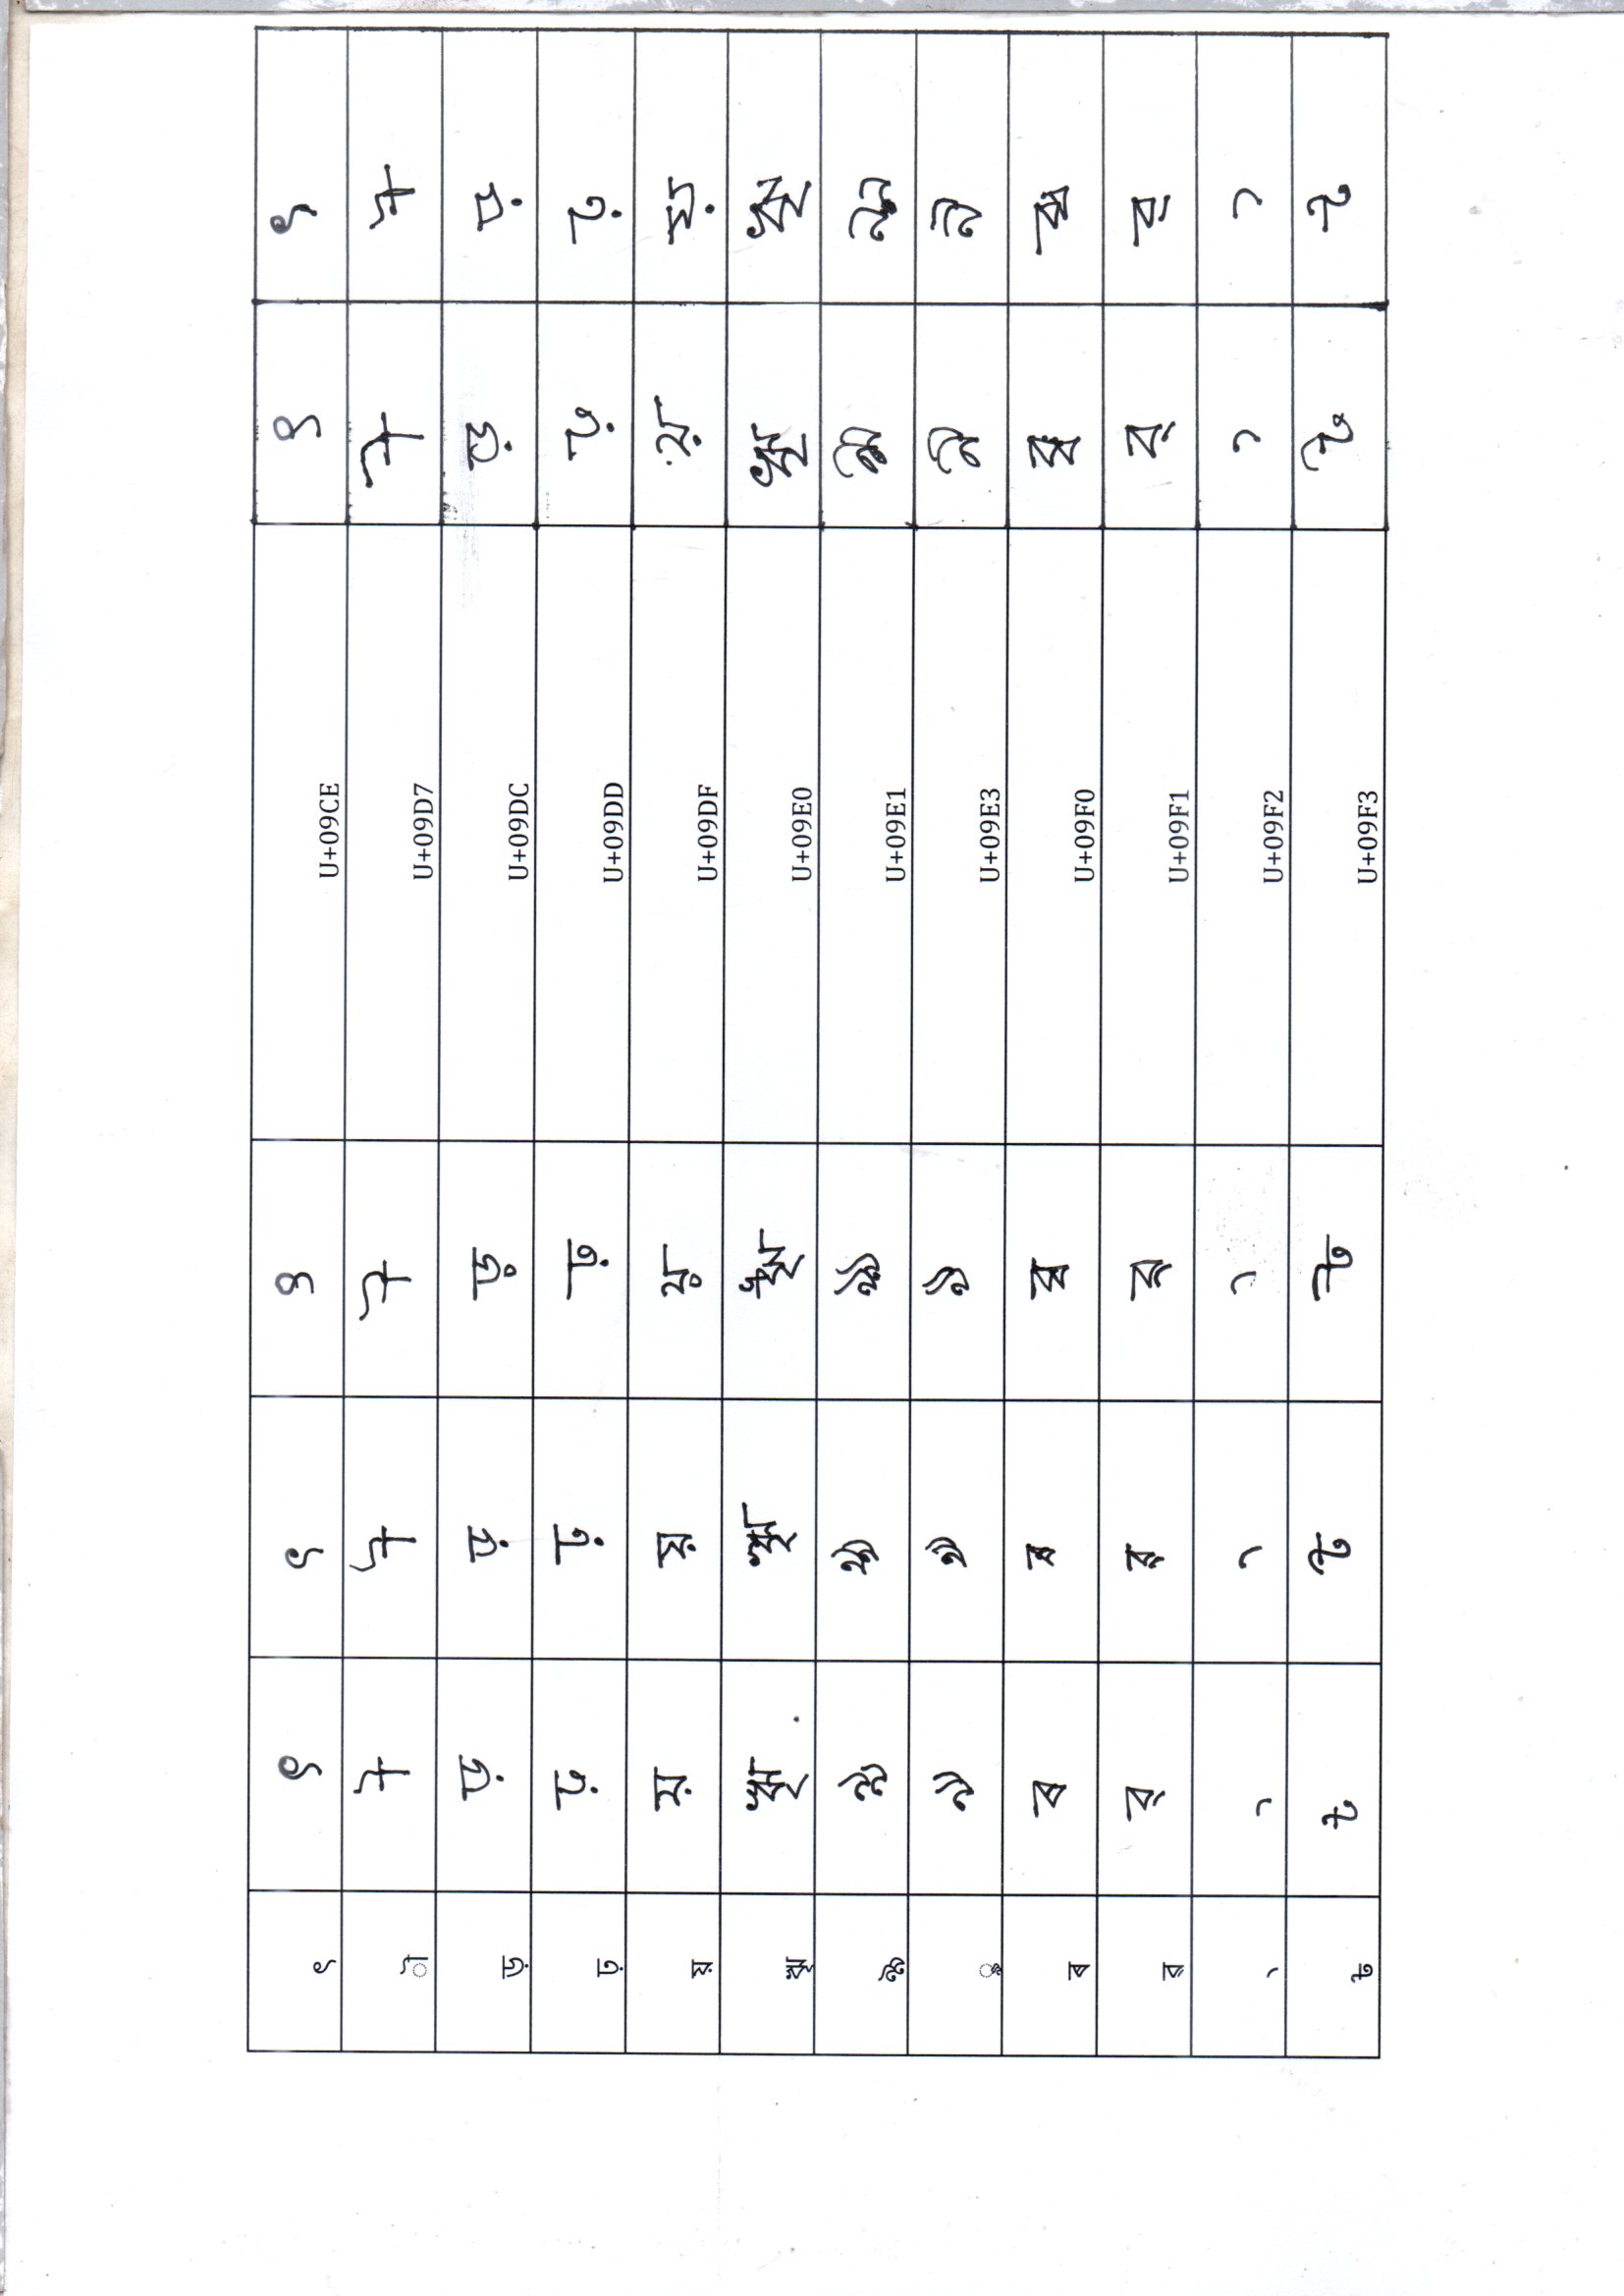 ৎ ৎ ৎ ৎ U+09CE ৎ ৎ
ৗ ৗ ৗ ৗ U+09D7 ৗ ৗ
ড় ড় ড় ড় U+09DC ড় ড়
ঢ় ঢ় ঢ় ঢ় U+09DD ঢ় ঢ়
য় য় য় য় U+09DF য় য়
ৠ ৠ ৠ ৠ U+09E0 ৠ ৠ
ৡ ৡ ৡ ৡ U+09E1 ৡ ৡ
ৣ ৣ ৣ ৣ U+09E3 ৣ ৣ
ৰ ৰ ৰ ৰ U+09F0 ৰ ৰ
ৱ ৱ ৱ ৱ U+09F1 ৱ ৱ
৲ ৲ ৲ ৲ U+09F2 ৲ ৲
৳ ৳ ৳ ৳ U+09F3 ৳ ৳